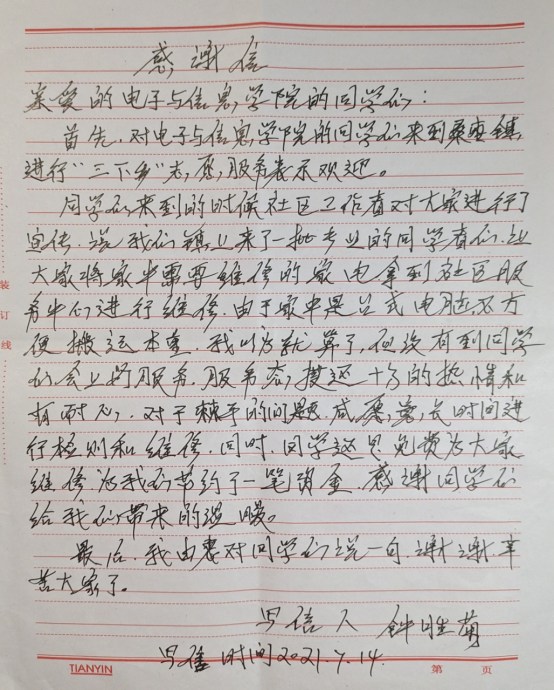 感谢信
亲爱的电子与信息学院的同学们：
首先,对电子与信息学院的同学们来到桑枣镇
进行“三下乡”志愿服务表示欢迎。
同学们来到的时候社区工作者对大家进行了
宣传.说我们镇上来了一批专业的同学者们.让
大家将家中需要维修的家电拿到社区服
务中心进行维修.由于家中是台式电脑不方
便搬运本重.我以为就算了,但没有到同学
们会上门服务.服务态度还十分的热情和
有耐心,对于棘手的问题.咸愿意长时间进
行检测和维修.同时.同学这思免费为大家
维修.为我们节约了一笔资金.感谢同学们
给我们带来的温暖。
最后.我由衷对同学们说一句.谢谢.辛
苦大家了。
写信人
写信时间2021.7.14.
装
订
线
TIANYIN
第 页